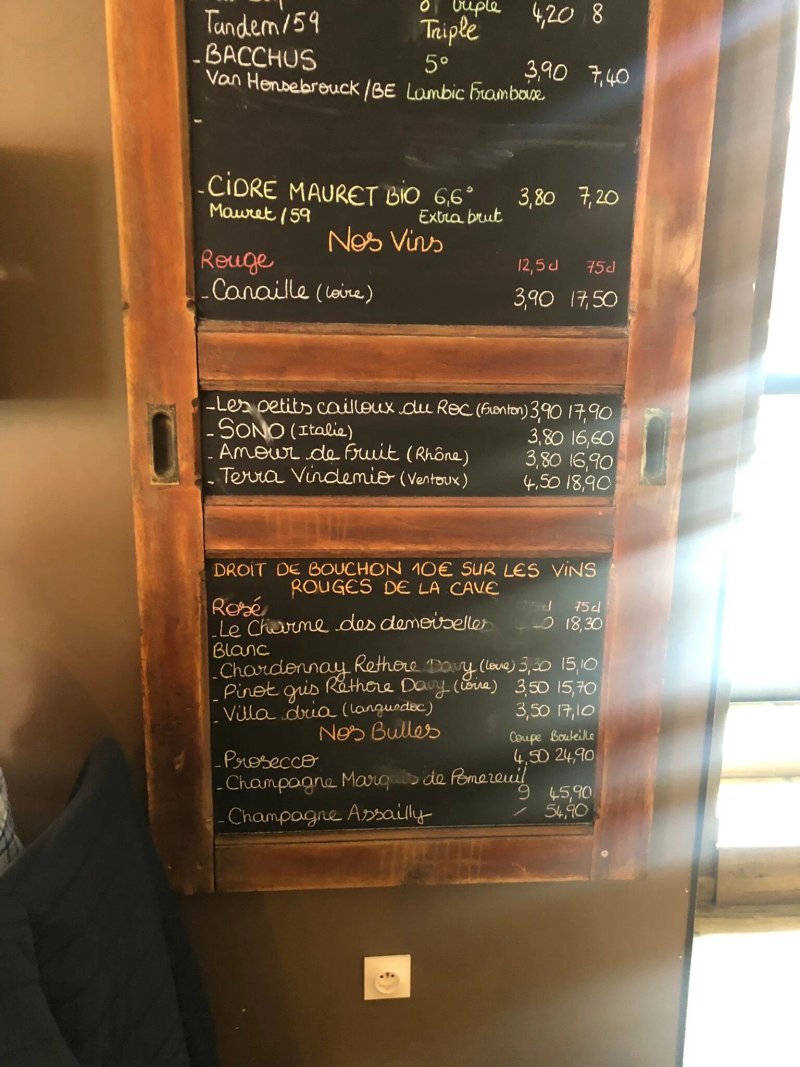 Triple
Tandem/59 Triple 4,20 8
- BACCHUS 5° 3,90 7,40
Van Honsebrouck/BE Lambic Framboise
-
- CIDRE MAURET BIO 6,6° 3,80 7,20
Mauret/59 Extra brut
Nos Vins
Rouge 12,5cl 75cl
- Canaille (Loire) 3,90 17,50
- Les petits cailloux du Roc (Fronton) 3,90 17,90
- SONO (Italie) 3,80 16,60
- Amour de Fruit (Rhône) 3,80 16,90
- Terra Vindemio (Ventoux) 4,50 18,90
DROIT DE BOUCHON 10€ SUR LES VINS
ROUGES DE LA CAVE
Rosé 75cl
- Le Charme des demoiselles 18,30
Blanc
- Chardonnay Rethoré Davy (Loire) 3,30 15,10
- Pinot gris Rethoré Davy (Loire) 3,50 15,70
- Villa dria (Languedoc) 3,50 17,10
Nos Bulles Coupe Bouteille
- Prosecco 4,50 24,90
- Champagne Marquis de Pomereuil
9 45,90
- Champagne Assailly / 54,90